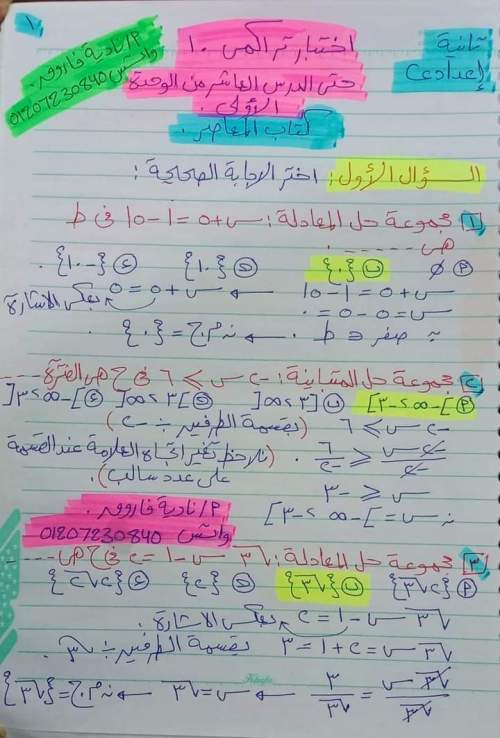 ١
ثانية
إعدادى
اختبار تراكمى ١٠
حتى الدرس العاشر من الوحدة
الأولى.
كتاب المعاصر.
م/نادية فاروق.
واتس 01207230840
السؤال الأول: اختر الإجابة الصحيحة:
[١] مجموعة حل المعادلة: س + ٥ = |-٥| فى ط
هى ------
(P) ∅ (ب) {٠} (ح) {١٠} (ء) {-١٠}.
س + ٥ = |-٥| ← س + ٥ = ٥ بعكس الإشارة
س = ٥ - ٥ = ٠
∵ صفر ∈ ط. ← ∴ م.ح = {٠}
[٢] مجموعة حل المتباينة: -٢س ≥ ٦ فى ح هى الفترة ----
(P) ]-∞، -٣] (ب) [٣، ∞[ (ح) ]٣، ∞[ (ء) ]-∞، ٣[
-٢س ≥ ٦ (بقسمة الطرفين ÷ -٢)
-٢س/-٢ ≤ ٦/-٢ . (نلاحظ تغير اتجاه العلامة عند القسمة
على عدد سالب).
س ≤ -٣
∴ س = ]-∞، -٣]
م/نادية فاروق.
واتس 01207230840
[٣] مجموعة حل المعادلة: √٣ س - ١ = ٢ فى ح هى ----
(P) {٢√٣} (ب) {√٣} (ح) {٢} (ء) {٢√٢}
√٣ س - ١ = ٢ بعكس الإشارة.
√٣ س = ٢ + ١ = ٣ بقسمة الطرفين ÷ √٣.
√٣ س/√٣ = ٣/√٣ ← س = √٣ ← ∴ م.ح = {√٣}